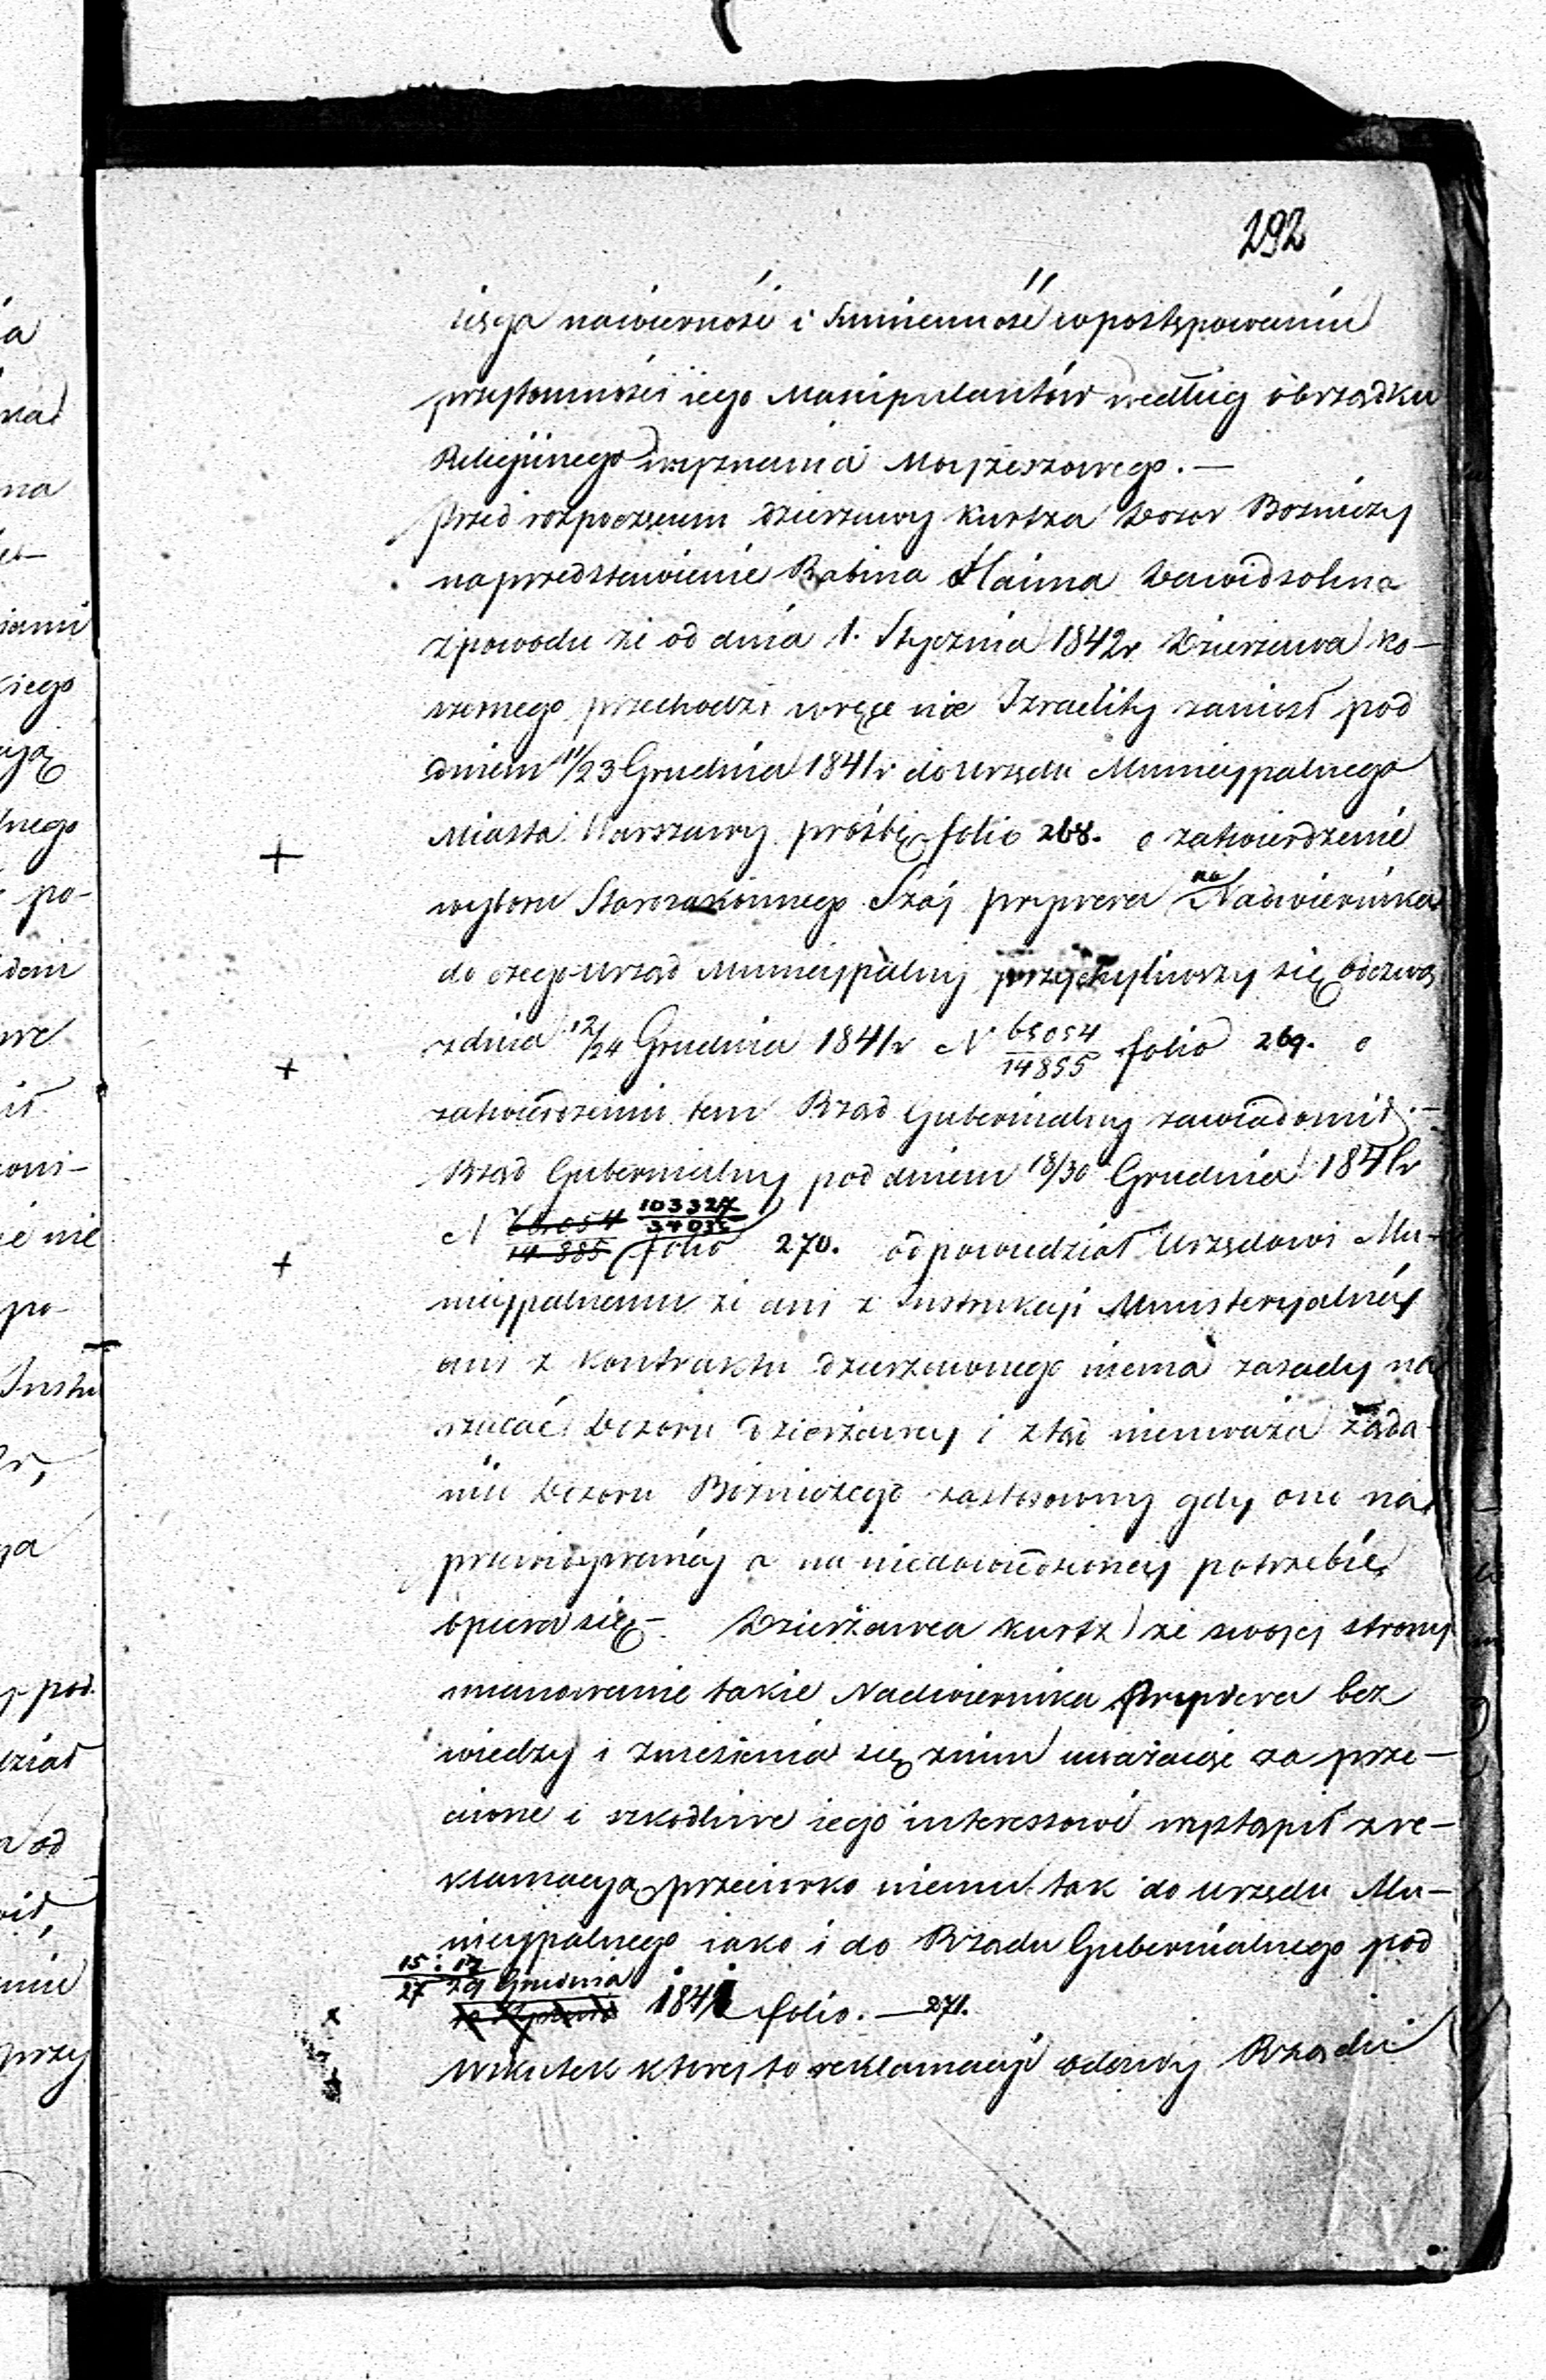 292
sięga na wierność i sumienność w postępowaniu
przytomności iego Manipulantów według obrządku
Religijnego wyznania Mojżeszowego. —
Przed rozpoczęciem dzierżawy Kurtza Dozor Bożniczy
na przedstawienie Rabina Haima Dawidsohna
z powodu że od dnia 1. Stycznia 1842 r Dzierżawa ko-
szernego przechodzi w ręce nie Izraelity zaniosł pod
dniem 11/23 Grudnia 1841 r do Urzędu Municypalnego
Miasta Warszawy prośbę folio 268. o zatwierdzenie
+
wyboru Starozakonnego Szai Prypera na Nadwiernika
do czego Urząd Municypalny przychyliwszy się odezwą
z dnia 12/24 Grudnia 1841 r N 65054/14855 folio 269. o
+
zatwierdzeniu tem Rząd Gubernialny zawiadomił. —
Rząd Gubernialny pod dniem 18/30 Grudnia 1841 r
N 103327/34035 folio 270. odpowiedział Urzędowi Mu-
+
nicypalnemu że ani z Instrukcji Ministeryalnéj
ani z Kontraktu dzierżawnego niema zasady na
rzucać Dozoru Dzierżawcy i ztąd nieuważa żąda-
niu Dozoru Bożniczego zastosowny gdy one na
przewidywanéj a na niedowiedzionéj potrzebie
opiera się — Dzierżawca Kurtz ze swojej strony
mianowanie takie Nadwiernika Prypera bez
wiedzy i zniesienia się z nim uważając za prze-
ciwne i szkodliwe iego interessowi wystąpił z re-
klamacyą przeciwko niemu tak do Urzędu Mu-
nicypalnego iako i do Rządu Gubernialnego pod
15 i 17/27 29 Grudnia 1841 folio. — 271.
Wskutek któréj to reklamacyi odezwy Rządu